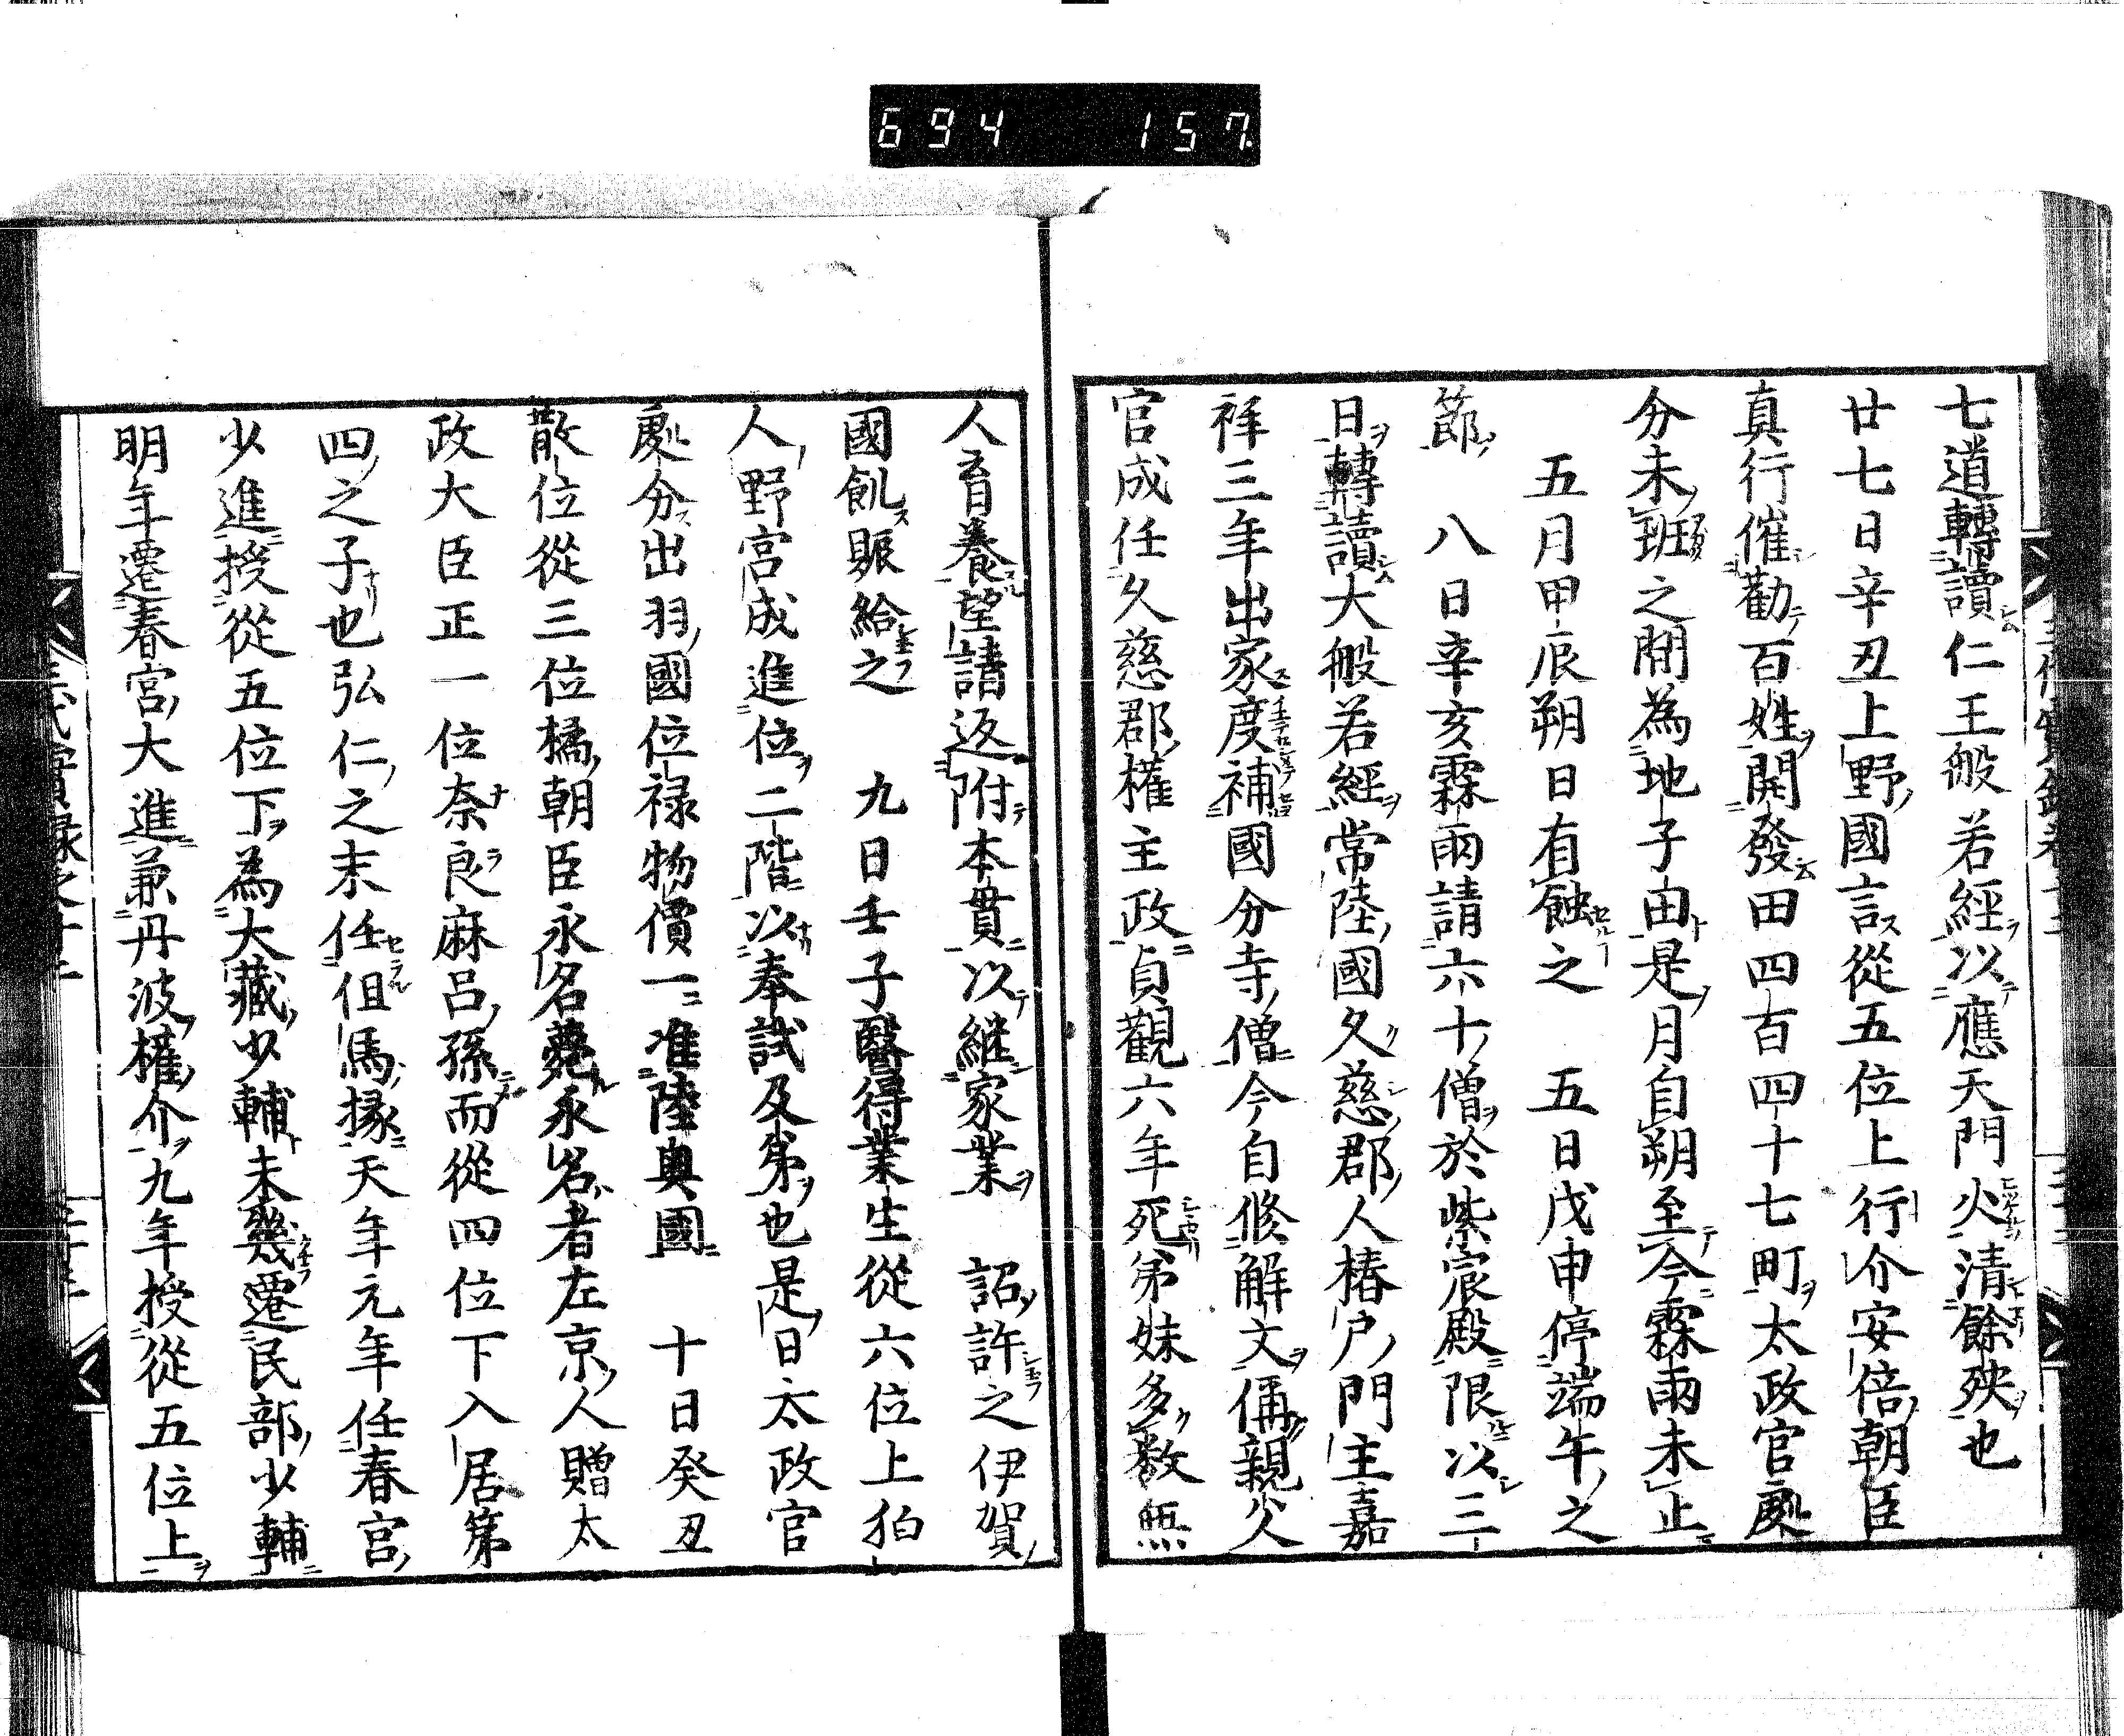 694 157
七道轉讀仁王般若經以應天門火清餘殃也
廿七日辛丑上野國言從五位上行介安倍朝臣
真行催勸百姓開發田四百四十七町太政官處
分未班之間為地子由是月自朔至今霖雨未止
五月甲辰朔日有蝕之 五日戊申停端午之
節 八日辛亥霖雨請六十僧於紫宸殿限以三
日轉讀大般若經常陸國久慈郡人椿戶門主嘉
祥三年出家度補國分寺僧今自修解文偁親父
官成任久慈郡權主政貞觀六年死弟妹多數無
人育養望請返附本貫以継家業 詔許之伊賀
國飢賑給之 九日壬子醫得業生從六位上狛
人野宮成進位二階以奉試及第也是日太政官
處分出羽國位禄物價一准陸奥國 十日癸丑
散位從三位橘朝臣永名薨永名者左京人贈太
政大臣正一位奈良麻呂孫而從四位下入居第
四之子也弘仁之末任但馬掾天年元年任春宮
少進授從五位下為大藏少輔未幾遷民部少輔
明年遷春宮大進兼丹波權介九年授從五位上